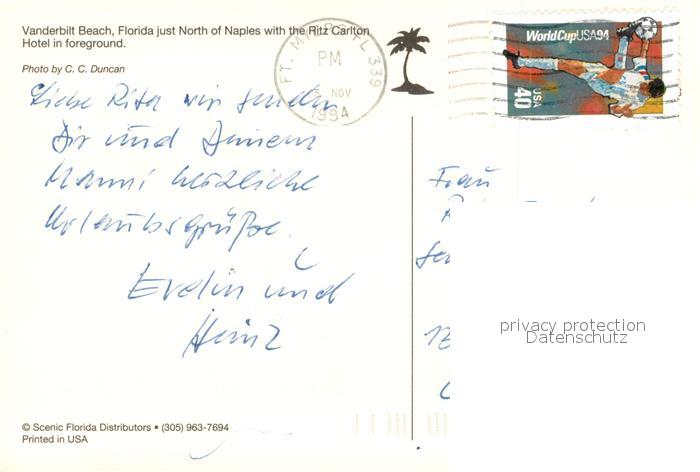 Vanderbilt Beach, Florida just North of Naples with the Ritz Carlton
Hotel in foreground.
Photo by C. C. Duncan
FT. MYERS FL 339
PM
NOV
1994
WorldCupUSA94
40
USA
Liebe Rita wir senden
Dir und Deinem
Manni herzliche
Urlaubsgrüße.
Evelin und
Heinz
Frau
privacy protection
Datenschutz
© Scenic Florida Distributors • (305) 963-7694
Printed in USA